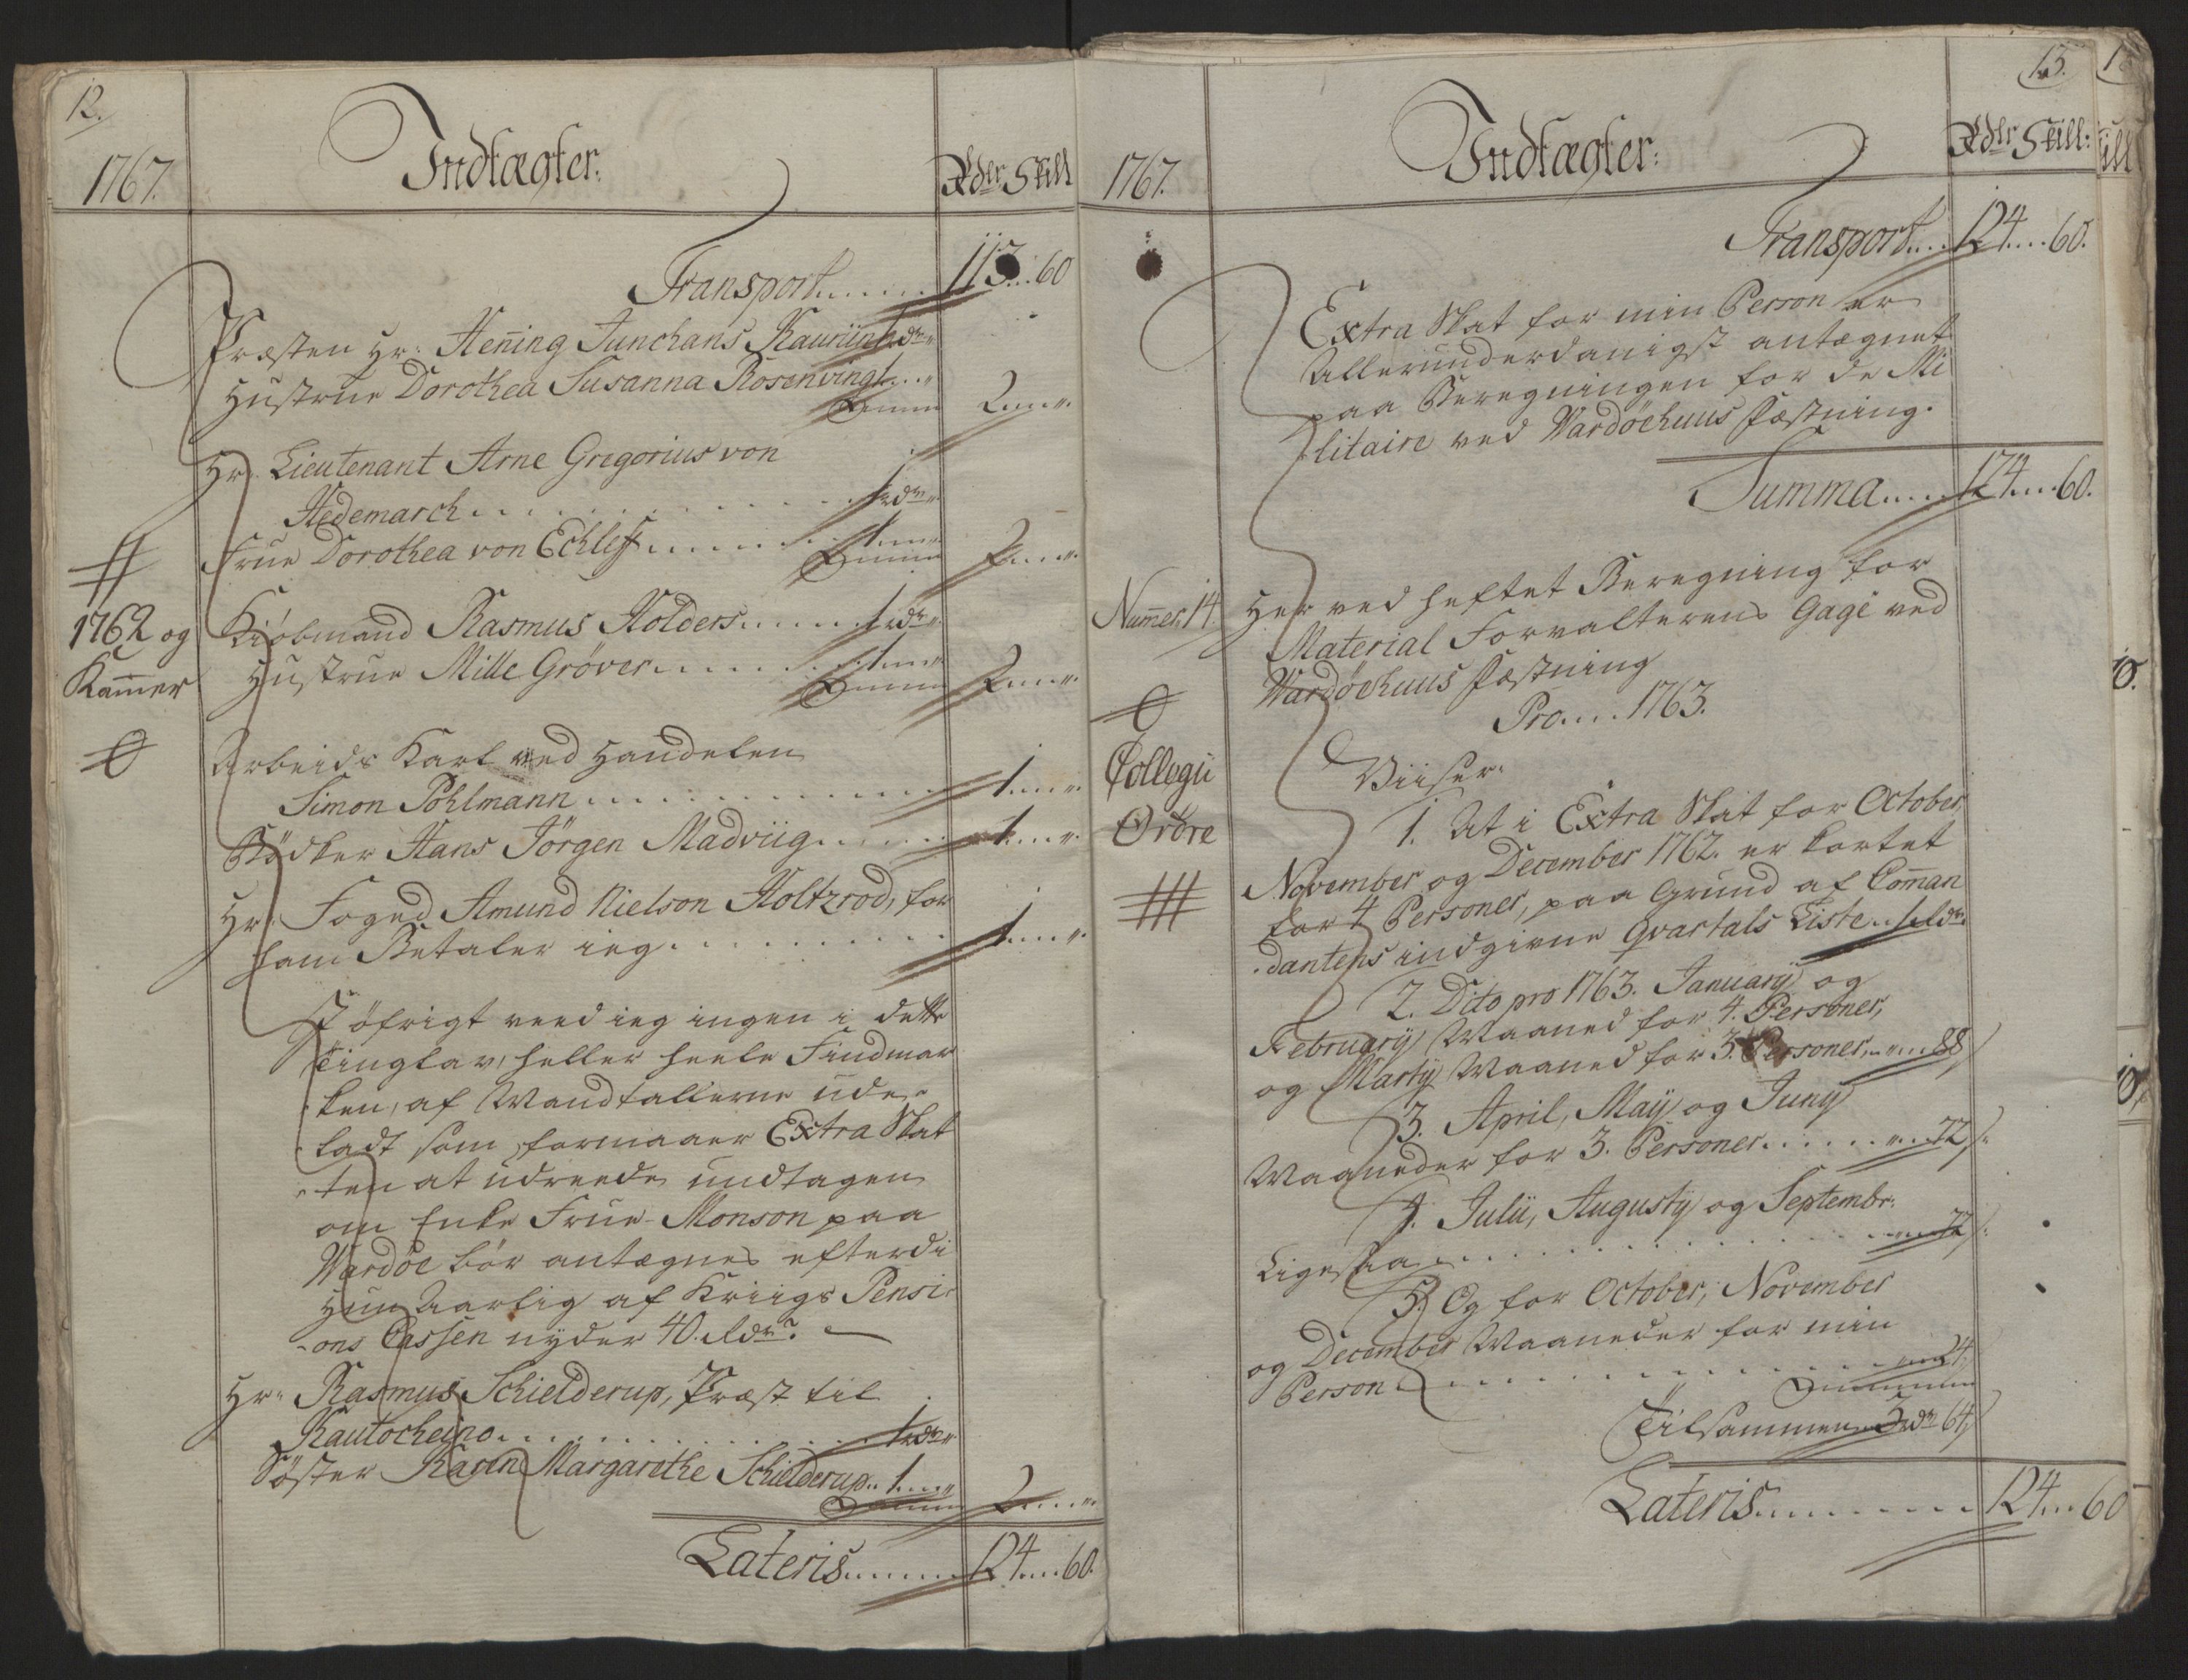 12.
1767.
Indtægter.
Rdlr Skill
Transport...... 113...60
Præsten Hr: Hening Junchans Kauriin 1 rdr "
Hustrue Dorothea Susanna Rosenvinge...1...."
2...."
Hr: Lieutenant Arne Gregorius von
Hedemarch........... 1 rdr "
Frue Dorothea von Echleff......1...."
2...."
1762 og
Kammer
Kiöbmand Rasmus Holders......1 rdr "
Hustrue Mille Gröver........1...."
2...."
Arbeids Karl ved Handelen
Simon Pohlmann............ 1...."
Bödker Hans Jörgen Madviig....... 1...."
Hr: Foged Amund Nielson Holtzrod, for
ham Betaler ieg......... 1...."
I öfrigt veed ieg ingen i dette
Tinglav, heller heele Findmar
ken, af Mandtallerne ude-
ladt som formaaer Extra Skat
ten at udreede undtagen
om Enke Frue Monson paa
Wardöe bör antægnes efterdi
Hun Aarlig af Kriigs Pensi-
ons Cassen nyder 40. Rdr.
Hr: Rasmus Schielderup, Præst til
Kautocheino............ 1 rdr "
Söster Karen Margarethe Schielderup.. 1...."
2...."
Lateris...... 124....60.
13.
1767.
Indtægter:
Rdlr Skill:
Transport.... 124....60.
Extra Skat for min Person er
Allerunderdanigst antægnet
paa Beregningen for de Mi
litaire ved Wardöehuus Fæstning.
Summa..... 124....60.
Num̅er. 14.
Her ved heftet Beregning for
Material Forvalterens Gage ved
Wardöehuus Fæstning
Pro.... 1763.
Collegii
Ordre
Viiser:
1. At i Extra Skat for October,
November og December 1762. er kortet
for 4 Personer, paa Grund af Com̅an
dantens indgivne Qvartals Liste..1 Rdr.
2. Dito pro 1763. Januarÿ og
Februarÿ Maaned for 4. Personer,
og Martÿ Maaned for 3. Personer,..."...88 s
3. April, Maÿ og Junÿ
Maaneder for 3. Personer......"...72 s
4. Julii, Augustÿ og Septembr:
Ligesaa............"....72 s
5. Og for October, November
og December Maaneder for min
Person............"....24 s
Tilsammen.. 3 rdr 64 s
Lateris........ 124....60